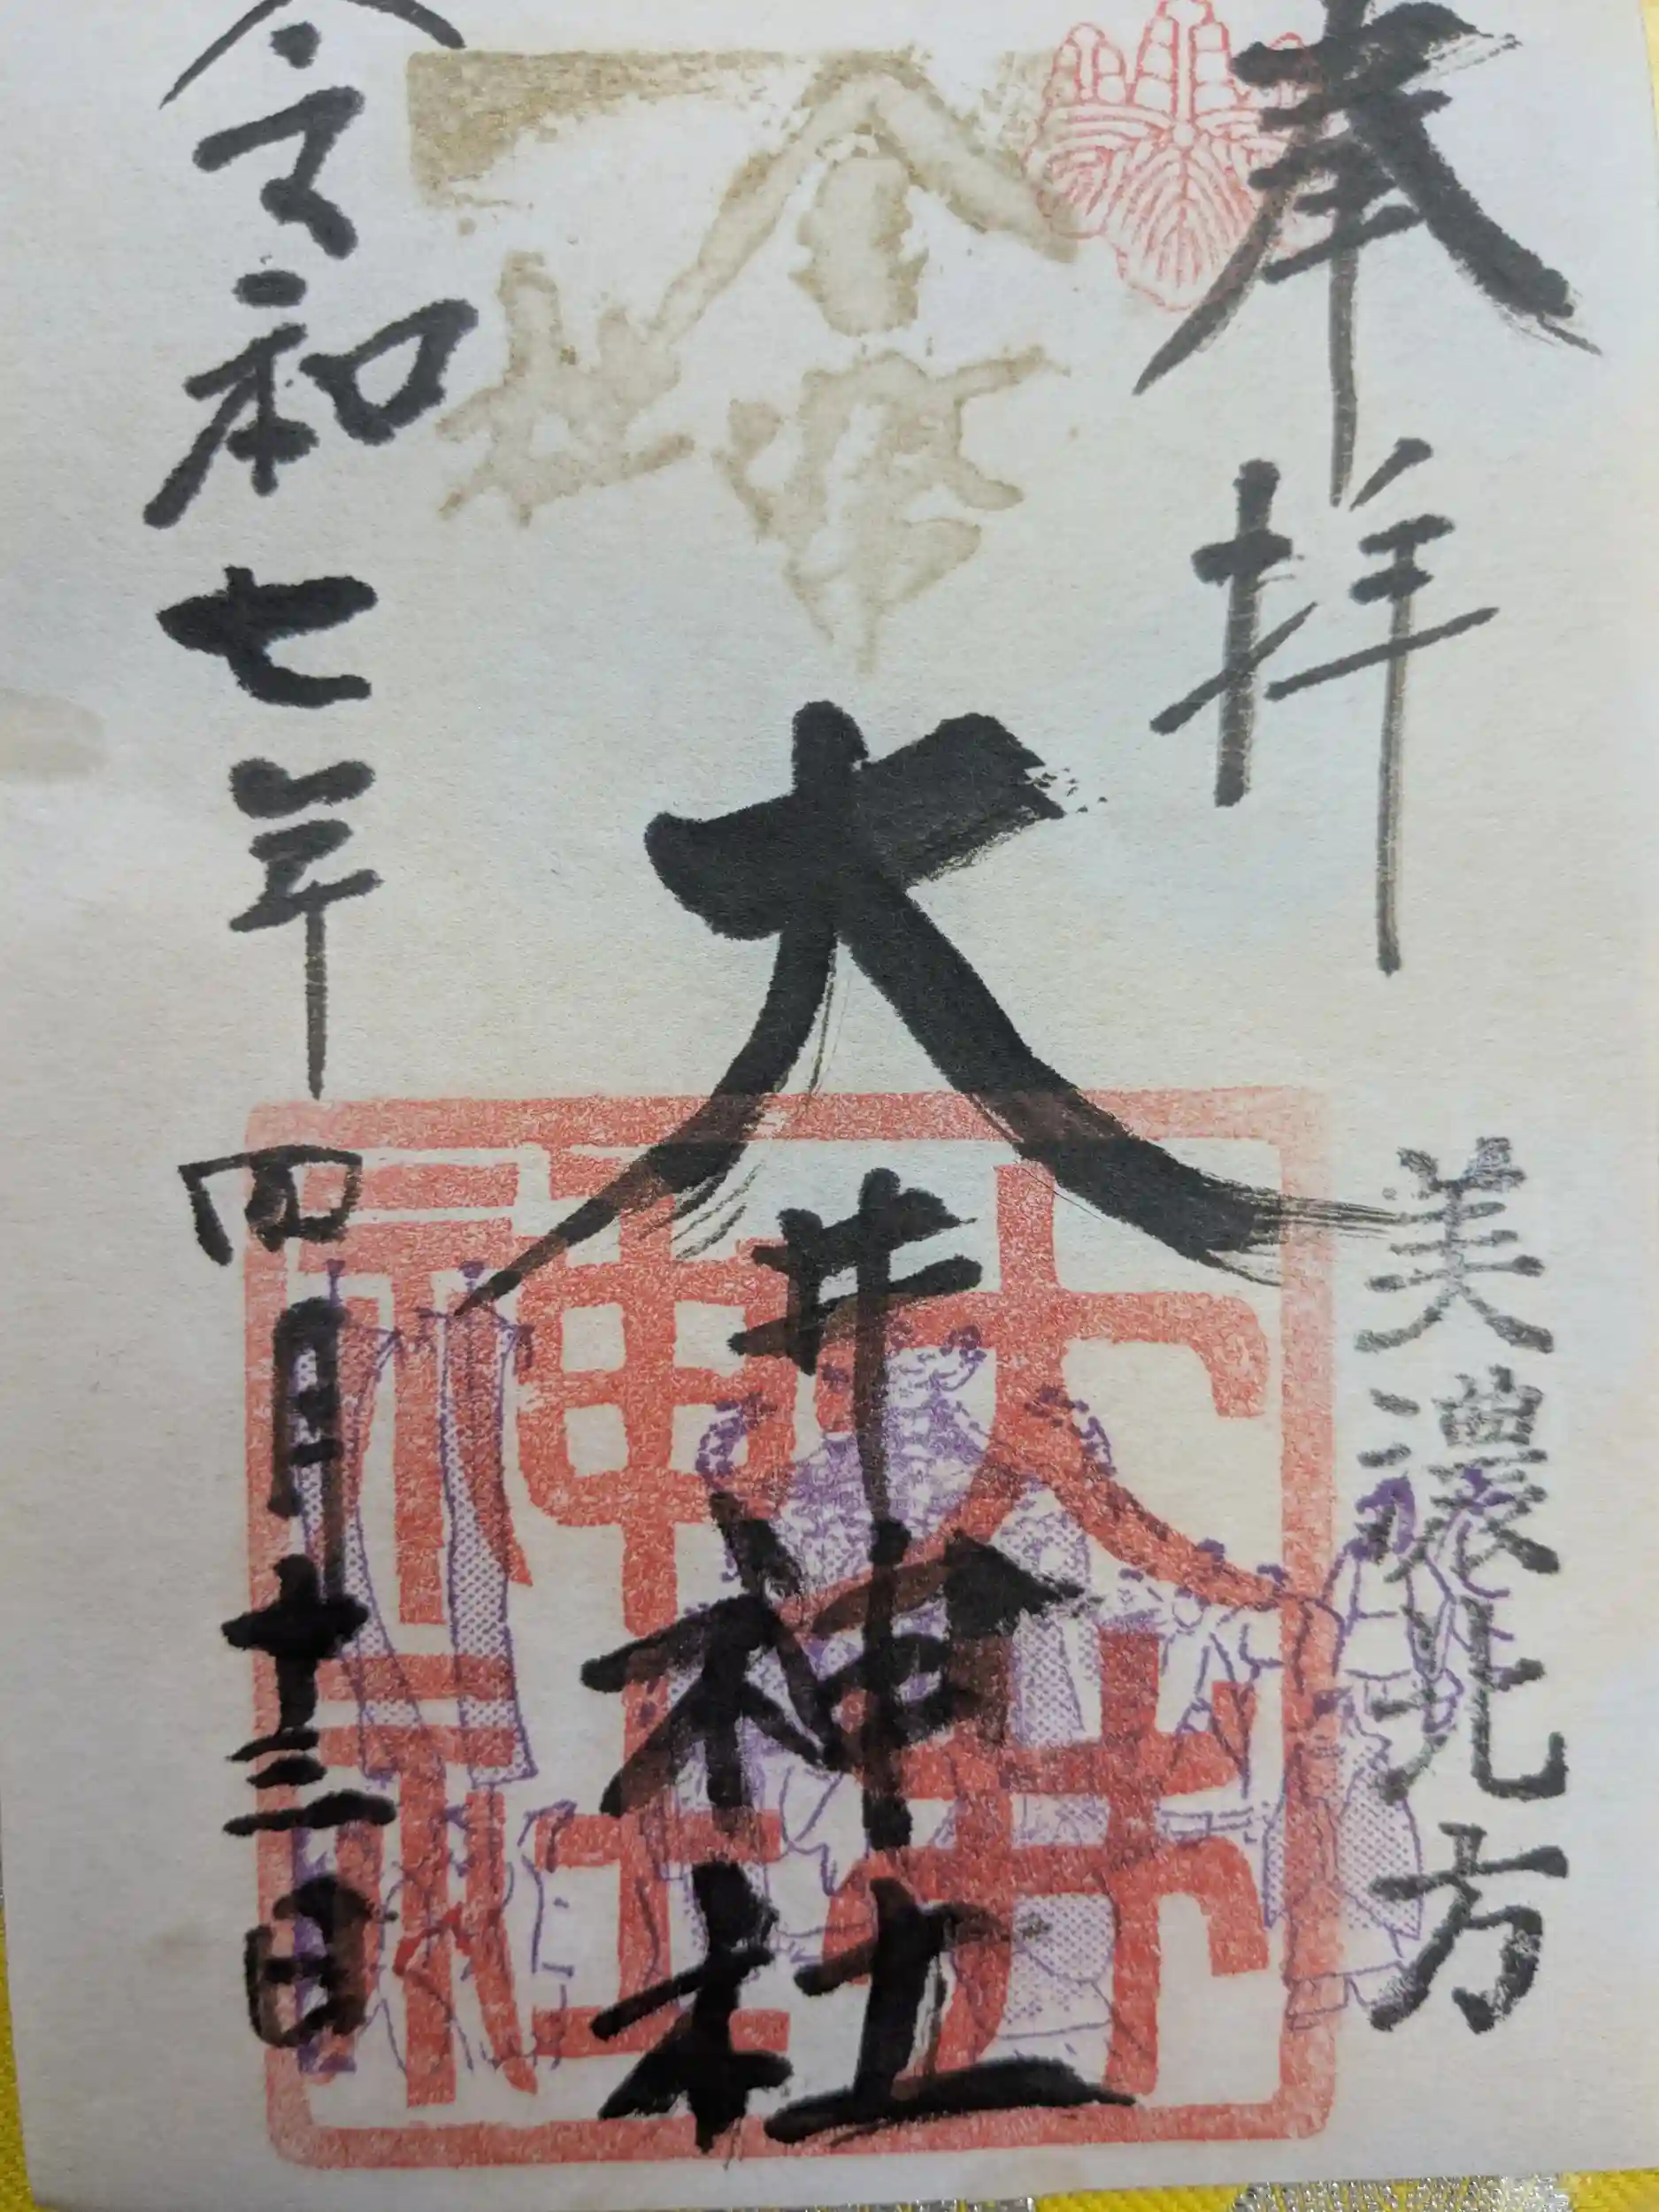 奉拝
美濃北方
金幣社
大井神社
大井神社
令和七年四月十三日